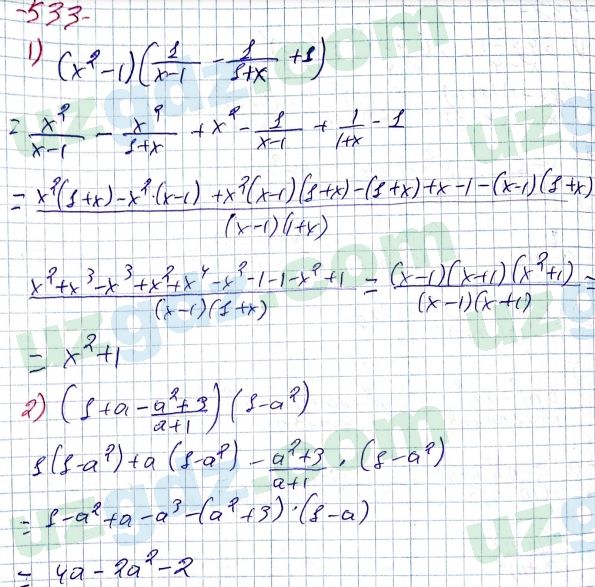 -533-
1) (x²-1)(1/(x-1) - 1/(1+x) + 1)
= x²/(x-1) - x²/(1+x) + x² - 1/(x-1) + 1/(1+x) - 1
= (x²(1+x) - x²·(x-1) + x²(x-1)(1+x) - (1+x) + x - 1 - (x-1)(1+x))/((x-1)(1+x))
(x²+x³-x³+x²+x⁴-x²-1-1-x²+1)/((x-1)(1+x)) = ((x-1)(x+1)(x²+1))/((x-1)(x+1)) =
= x²+1
2) (1+a - (a²+3)/(a+1)) (1-a²)
1(1-a²)+a(1-a²) - (a²+3)/(a+1) · (1-a²)
= 1-a²+a-a³-(a²+3)·(1-a)
= 4a-2a²-2